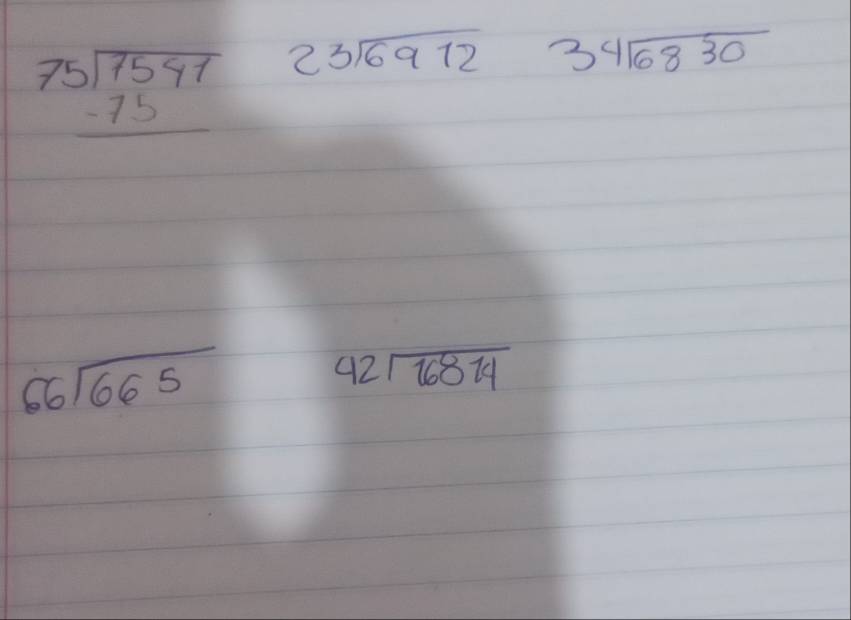 75⟌7541 23⟌6912 34⟌6830
-75
66⟌665 42⟌16814